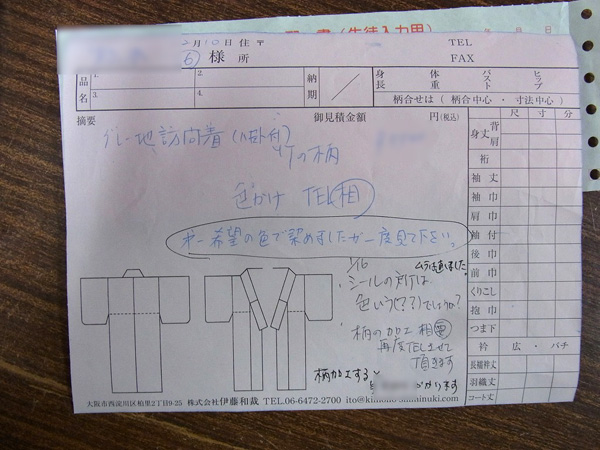 書(生徒入力用)
2月10日 住 〒 TEL
様 所 FAX
品名 1. 2. 3. 4. 納期 身長 体重 バスト ヒップ
柄合せは(柄合中心・寸法中心)
摘要 御見積金額 円(税込) 尺 寸 分
グレー地訪問着(八卦付)
竹の柄
色かけ TEL相
オー希望の色で染めましたが一度見て下さい。
1/16 ムラは直しました。
シールの対処は
色いう(??)でしょうか?
柄の加工 相要
再度TELさせて
頂きます
柄加工すると
かかります
身丈 背 肩
裄
袖丈
袖巾
肩巾
袖付
後巾
前巾
くりこし
抱巾
つま下
衿 広・バチ
長襦袢丈
羽織丈
コート丈
大阪市西淀川区柏里2丁目9-25 株式会社伊藤和裁 TEL.06-6472-2700